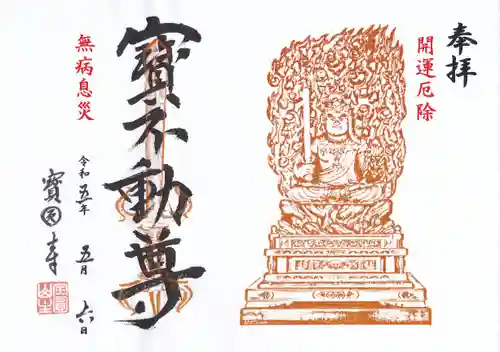 奉拝
開運厄除
寳不動尊
無病息災
令和五年 五月 六日
寳圓寺